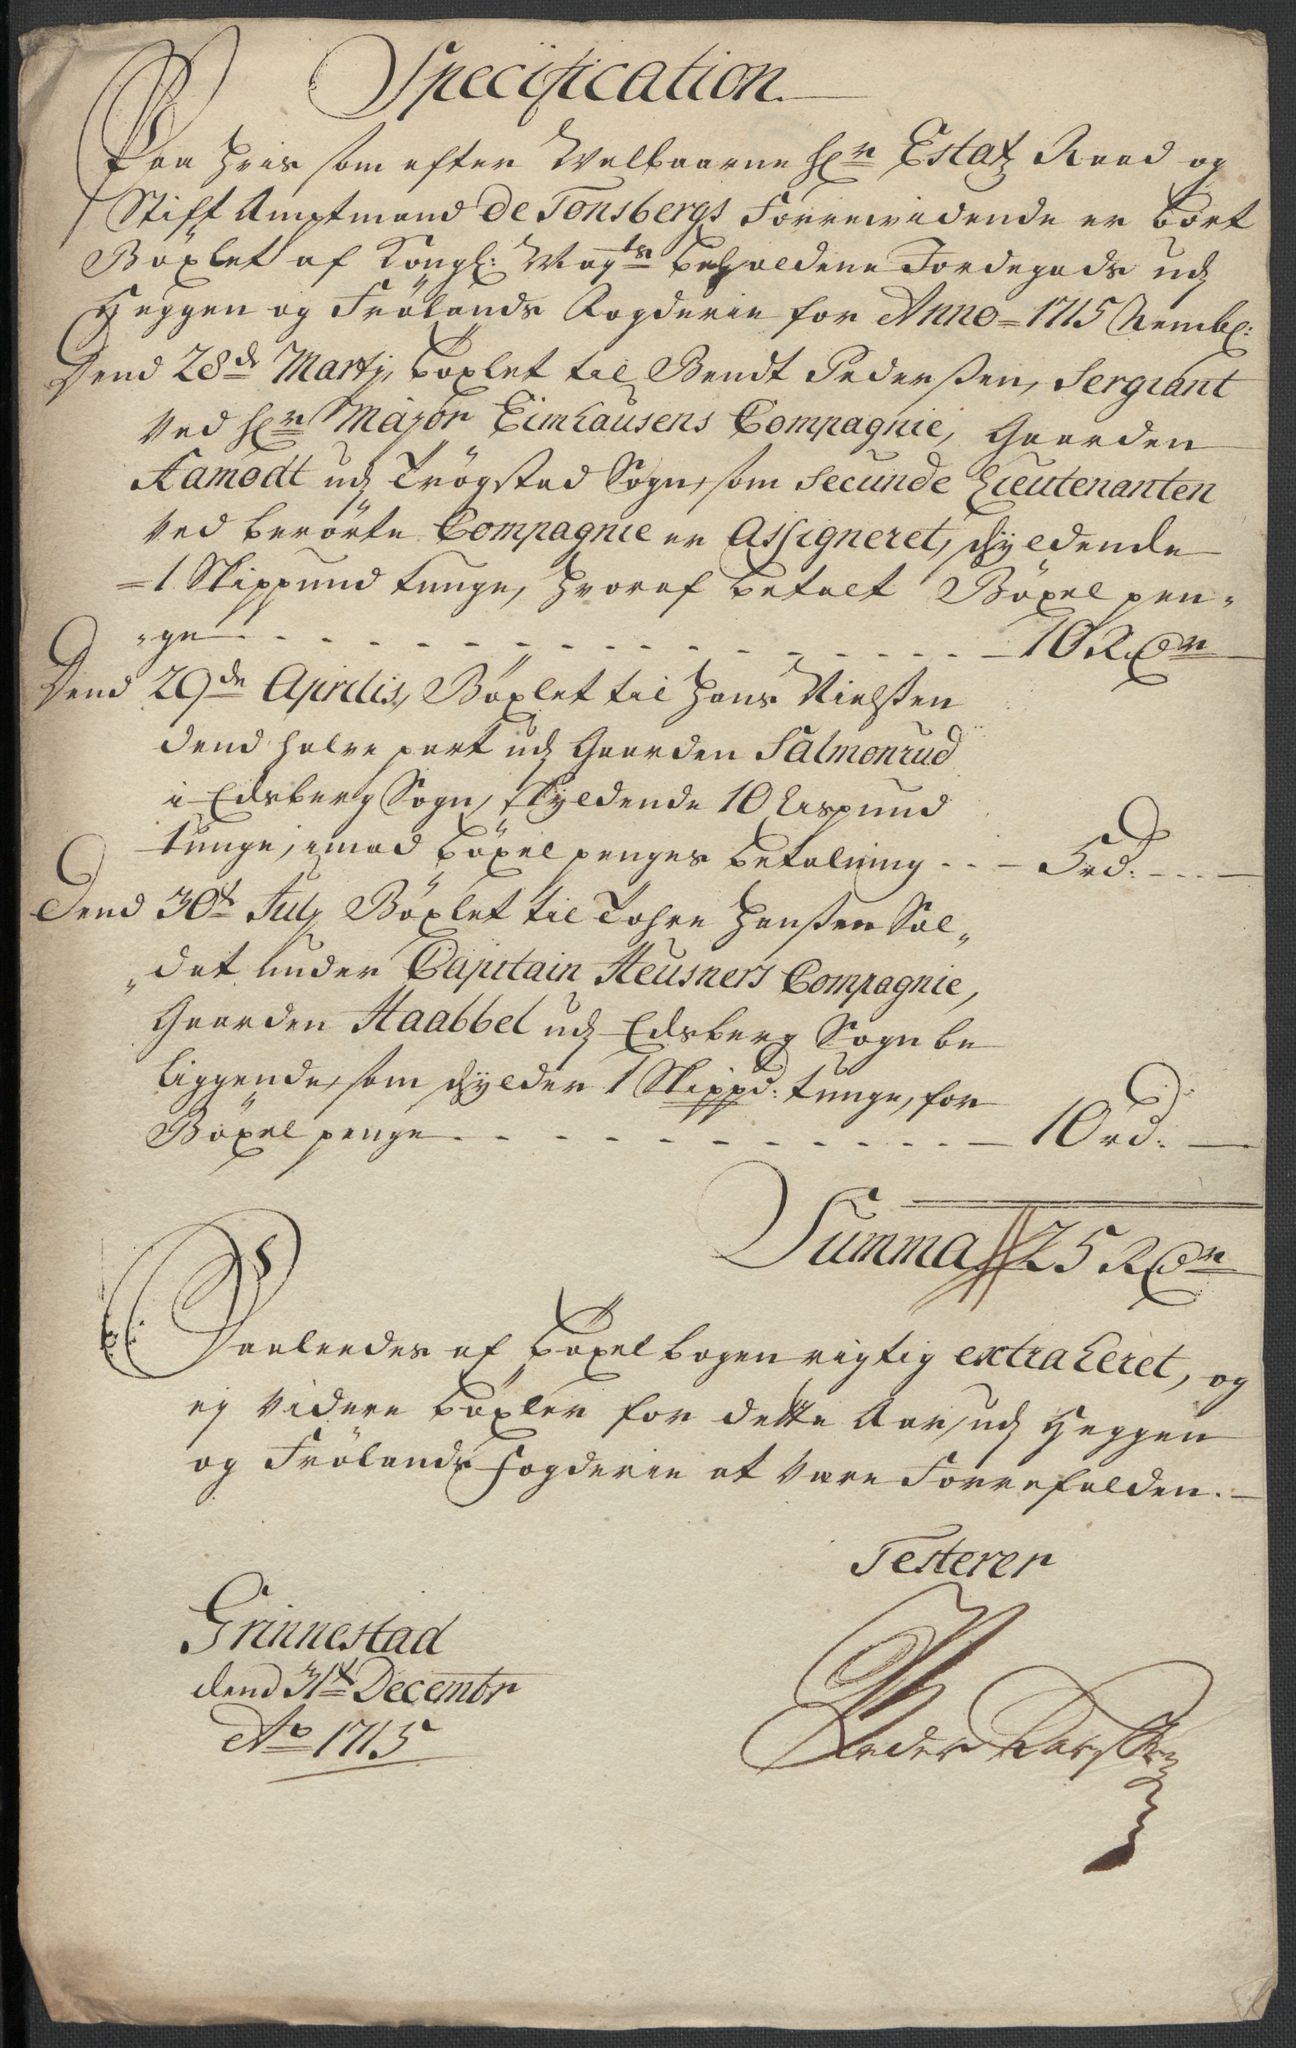 Specification
Paa hvis som efter Welbaarne Hr: Estatz Raad og
Stift Amptmand de Tonsbergs Forrewidende er bort
Böxlet af Kongl: Mayts beholdene Jordegods udj
Heggen og Frölands Fogderie for Anno = 1715 Nembl:
Dend 28de Martj, böxlet til Bendt Pedersen, Sergiant
ved Hr Major Eimhausens Compagnie, Gaarden
Ramodt udj Trögstad Sogn, som Secunde Lieutenanten
ved berörte Compagnie er Assigneret, schyldende
= 1 Skippund tunge, hvoraf betalt Böxel pen„
„ge - - - - - - - - - 10 Rdr
Dend 29de Aprilis, Böxlet til Hans Nielsen
dend halve part udj Gaarden Salmonrud
i Edsberg Sogn, skyldende 10 Lispund
tunge, imod böxel penges betalning - - - 5 rd: - - -
Dend 30t Julj Böxlet til Tohre Hansen Sol„
„dat under Capitain Heusners Compagnie,
Gaarden Haabbel udj Edsberg Sogn be
liggende, som schylder 1 Skippd: tunge, for
Böxel penge - - - - - - - - - 10 rd: -
Summa 25 Rdr
Saaledes af böxel bogen rigtig extraheret, og
ej videre böxler for dette Aar udj Heggen
og Frölands fogderie at være Forrefalden.
Testerer
Grinnestad
dend 31t Decembr
Ao 1715
Peder